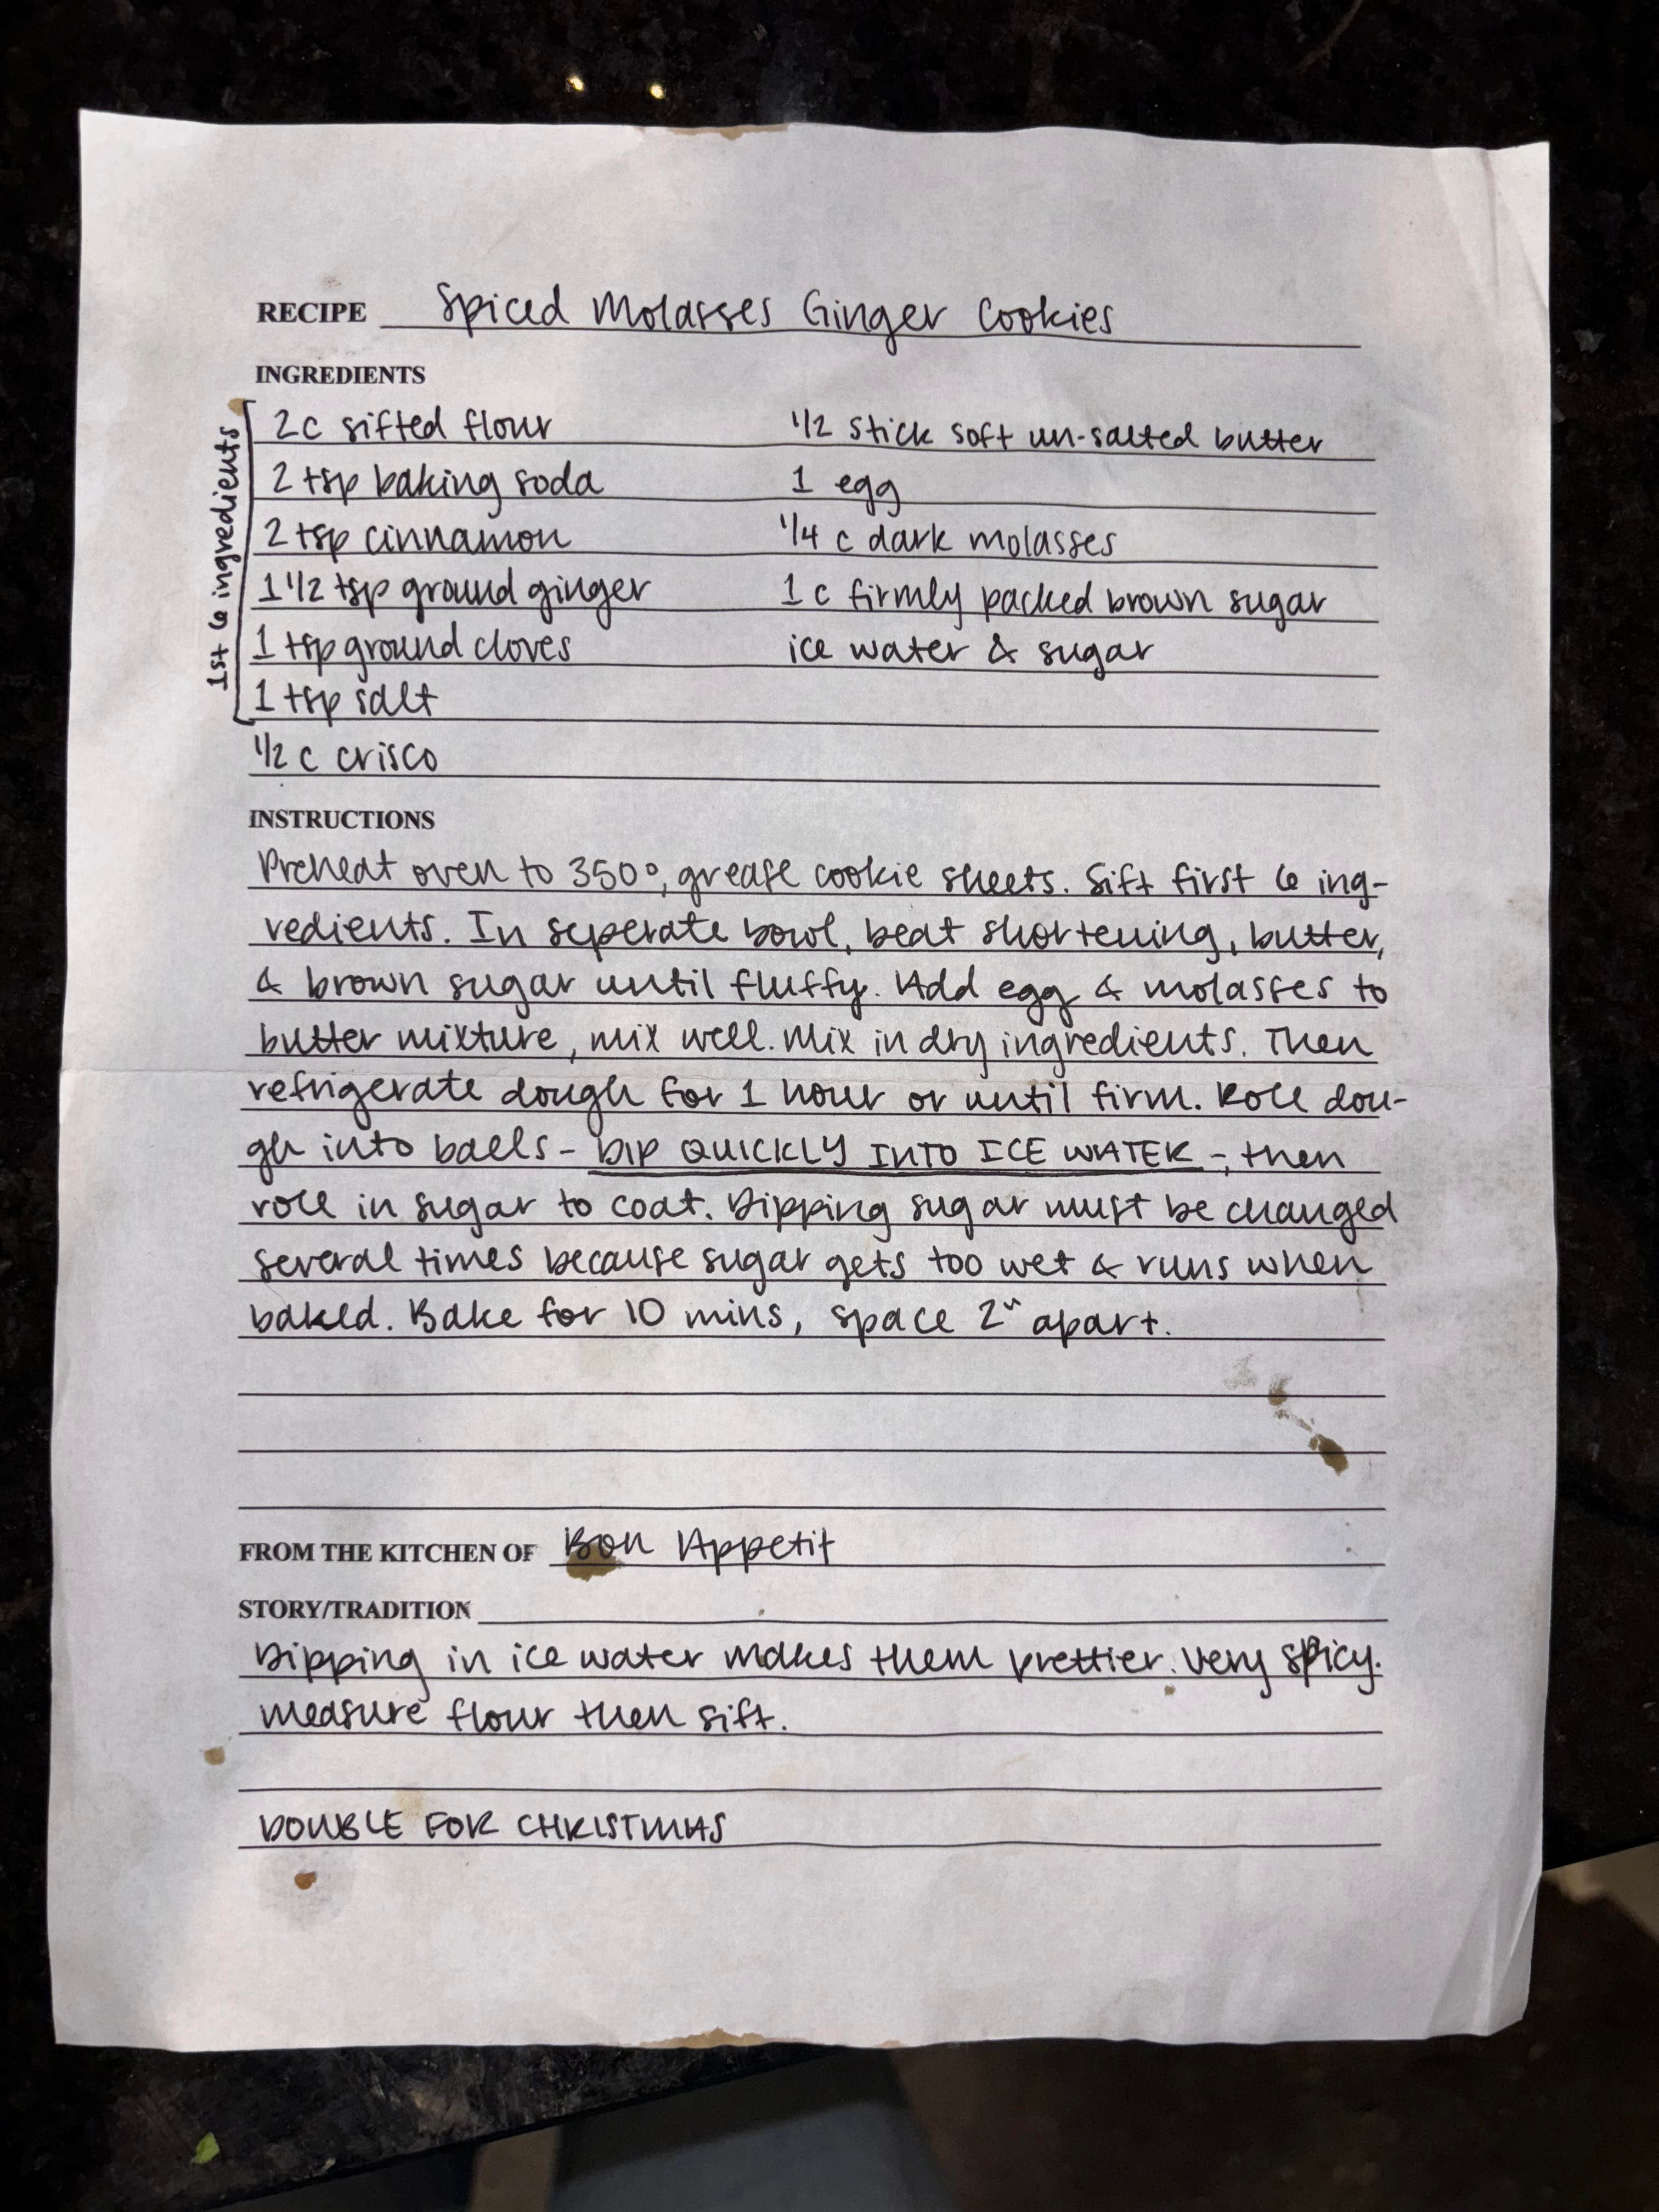 RECIPE Spiced Molasses Ginger Cookies
INGREDIENTS
1st 6 ingredients
2c sifted flour 1/2 stick soft un-salted butter
2 tsp baking soda 1 egg
2 tsp cinnamon 1/4 c dark molasses
1 1/2 tsp ground ginger 1 c firmly packed brown sugar
1 tsp ground cloves ice water & sugar
1 tsp salt
1/2 c crisco
INSTRUCTIONS
Preheat oven to 350°, grease cookie sheets. Sift first 6 ing-
redients. In seperate bowl, beat shortening, butter,
& brown sugar until fluffy. Add egg & molasses to
butter mixture, mix well. Mix in dry ingredients. Then
refrigerate dough for 1 hour or until firm. Roll dou-
gh into balls - DIP QUICKLY INTO ICE WATER -, then
roll in sugar to coat. Dipping sugar must be changed
several times because sugar gets too wet & runs when
baked. Bake for 10 mins, space 2" apart.
FROM THE KITCHEN OF Bon Appetit
STORY/TRADITION
Dipping in ice water makes them prettier. Very spicy.
measure flour then sift.
DOUBLE FOR CHRISTMAS